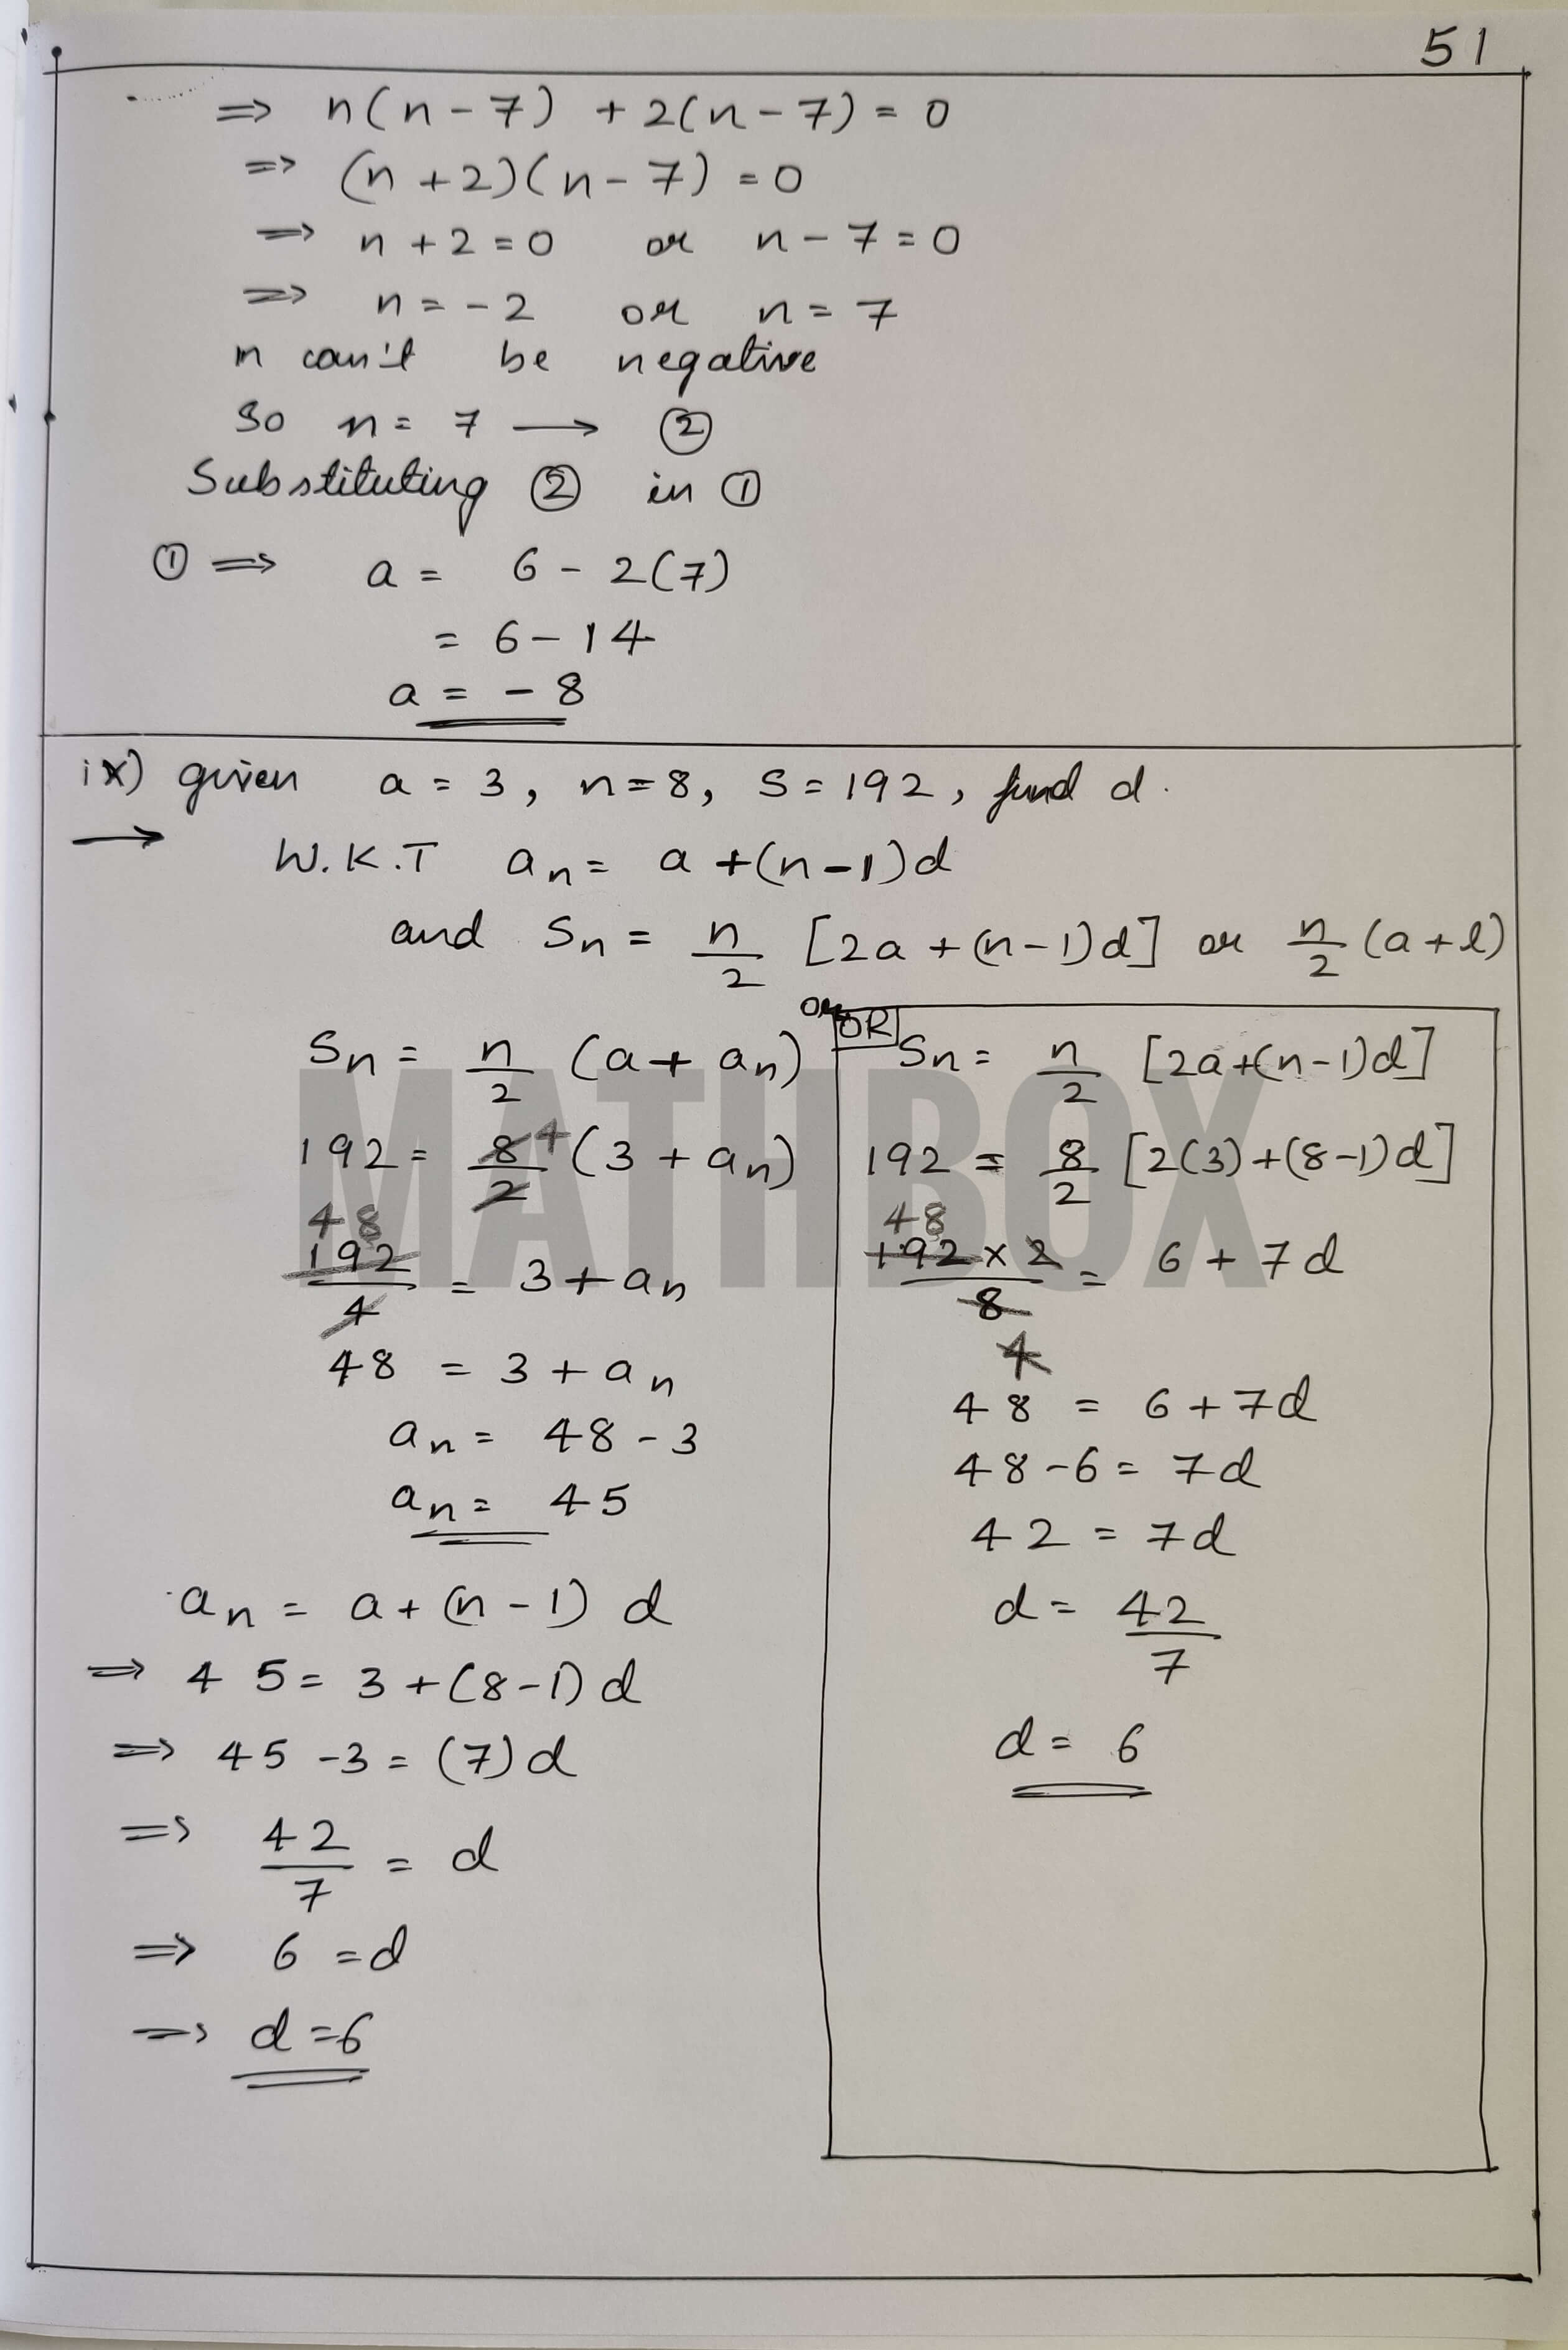 51
⇒ n(n - 7) + 2(n - 7) = 0
⇒ (n + 2)(n - 7) = 0
⇒ n + 2 = 0 or n - 7 = 0
⇒ n = - 2 or n = 7
n can't be negative
So n = 7 ⟶ ②
Substituting ② in ①
① ⇒ a = 6 - 2(7)
= 6 - 14
a = - 8
ix) given a = 3, n = 8, S = 192, find d.
⟶ W.K.T aₙ = a + (n - 1)d
and Sₙ = n/2 [2a + (n - 1)d] or n/2 (a + l)
Sₙ = n/2 (a + aₙ)
192 = 8/2 4 (3 + aₙ)
48
192/4 = 3 + aₙ
48 = 3 + aₙ
aₙ = 48 - 3
aₙ = 45
aₙ = a + (n - 1) d
⇒ 45 = 3 + (8 - 1) d
⇒ 45 - 3 = (7) d
⇒ 42/7 = d
⇒ 6 = d
⇒ d = 6
OR
OR
Sₙ = n/2 [2a + (n - 1)d]
192 = 8/2 [2(3) + (8 - 1)d]
48
192 × 2/8 = 6 + 7d
4
48 = 6 + 7d
48 - 6 = 7d
42 = 7d
d = 42/7
d = 6
MATHBOX